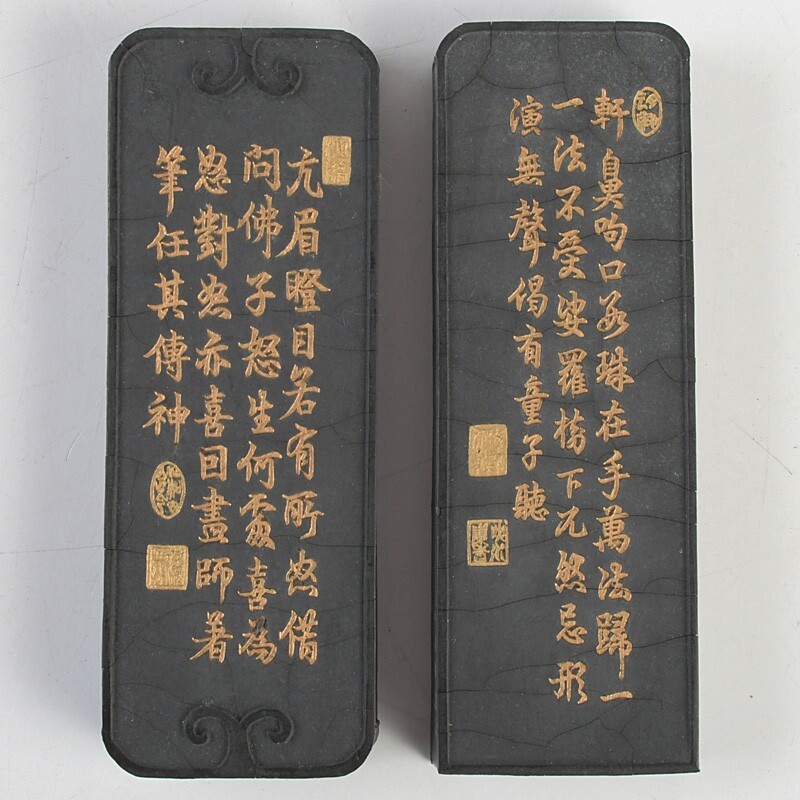 亢眉瞪目若有所怒借
問佛子怒生何處喜為
怒對怒亦喜回畫師著
筆任其傳神
軒鼻呴口數珠在手萬法歸一
一法不受娑羅樹下兀然忘形
演無聲偈有童子聽